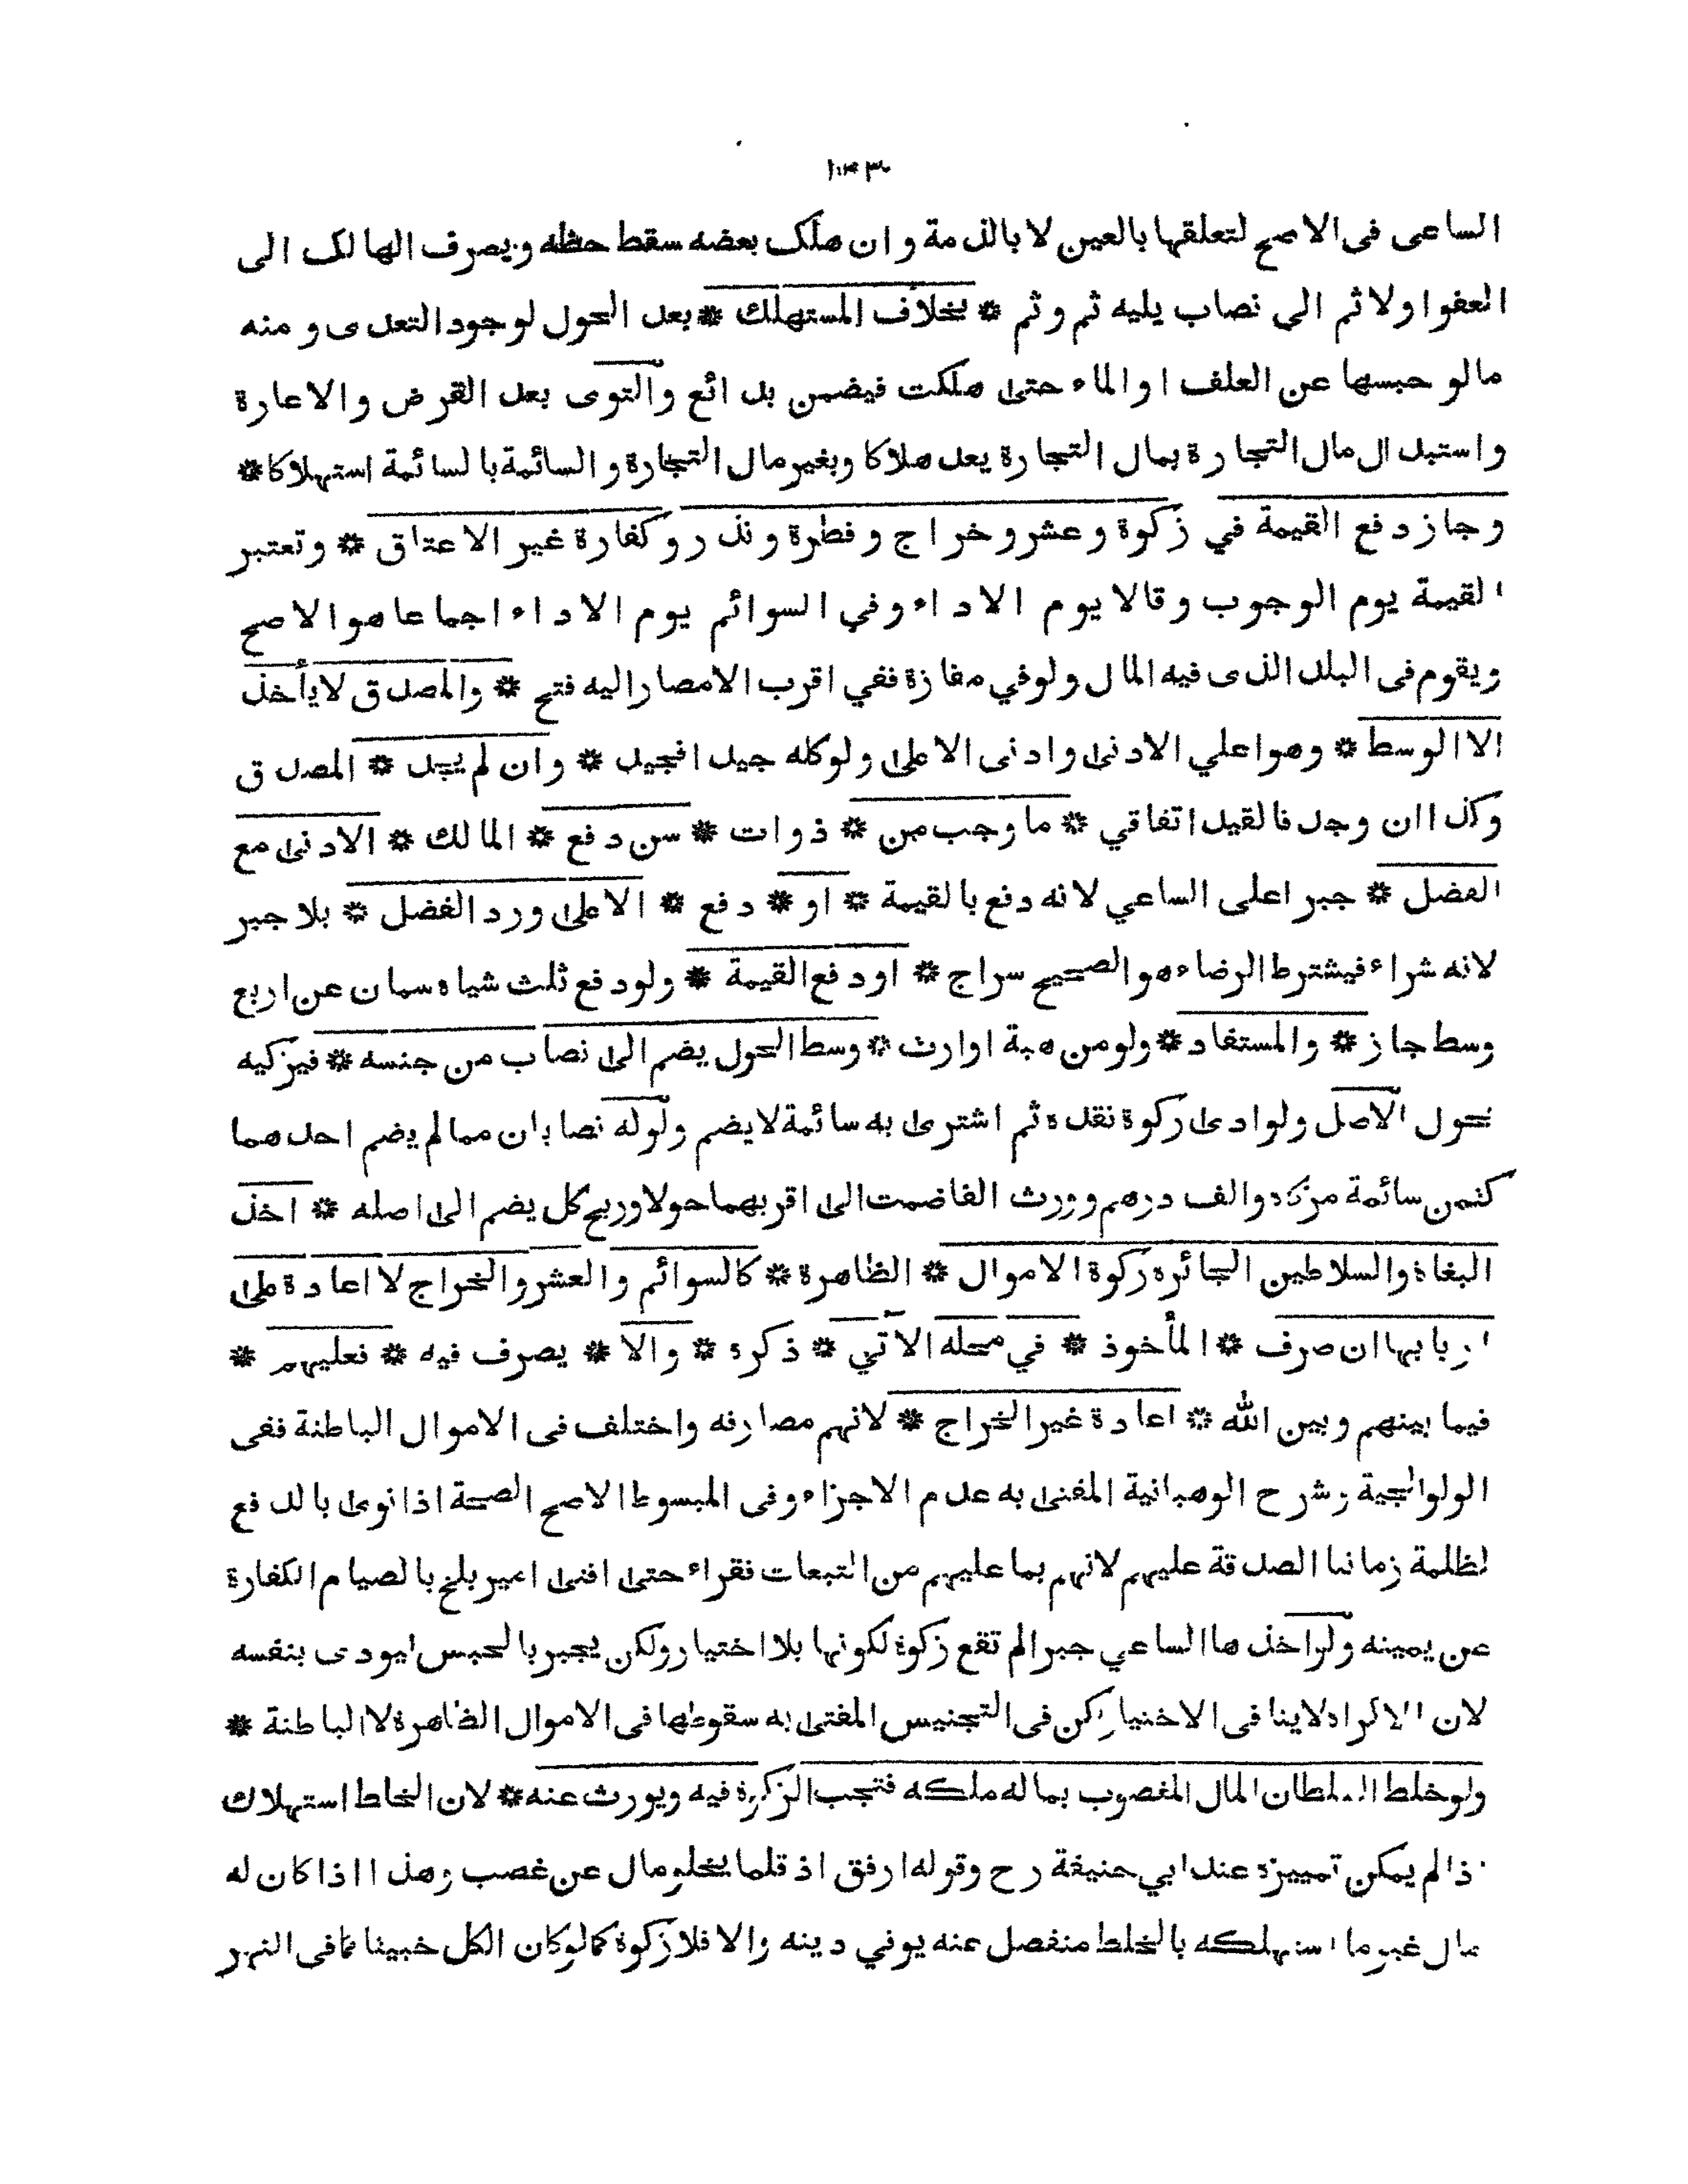 الساعى فى الاصح لتعلقها بالعين لا بالذمة وان هلك بعضه سقط حظه ويصرف الهالك الى
العفو اولا ثم الي نصاب يليه ثم وثم * بخلاف المستهلك * بعد الحول لوجود التعدى ومنه
مالو حبسها عن العلف او الماء حتى هلكت فيضمن بدائع والتوى بعد القرض والاعارة
واستبدال مال التجارة بمال التجارة يعد هلاكا وبغير مال التجارة والسائمة بالسائمة استهلاكا *
وجاز دفع القيمة في زكوة وعشر وخراج وفطرة ونذر وكفارة غير الاعتاق * وتعتبر
القيمة يوم الوجوب وقالا يوم الاداء وفي السوائم يوم الاداء اجماعا هو الاصح
ويقوم فى البلد الذى فيه المال ولوفي مفازة ففي اقرب الامصار اليه فتح * والمصدق لا يأخذ
الا الوسط * وهو اعلي الادنى وادنى الاعلى ولوكله جيدا فجيد * وان لم يجد * المصدق
وكذا ان وجد فالقيد اتفاقي * ما وجب من * ذوات * سن دفع * المالك * الادنى مع
الفضل * جبرا على الساعي لانه دفع بالقيمة * او * دفع * الاعلى ورد الفضل * بلا جبر
لانه شراء فيشترط الرضاء هو الصحيح سراج * او دفع القيمة * ولو دفع ثلث شياه سمان عن اربع
وسط جاز * والمستفاد * ولو من هبة او ارث * وسط الحول يضم الى نصاب من جنسه * فيزكيه
بحول الاصل ولو ادى زكوة نقده ثم اشترى به سائمة لا يضم ولو له نصابان مما لم يضم احدهما
كثمن سائمة مزكاه والف درهم وورث الفا ضمت الى اقربهما حولا وربح كل يضم الى اصله * اخذ
البغاة والسلاطين الجائره زكوة الاموال * الظاهرة * كالسوائم والعشر والخراج لا اعادة على
اربابها ان صرف * المأخوذ * في محله الآتي * ذكره * والا * يصرف فيه * فعليهم *
فيما بينهم وبين الله * اعادة غير الخراج * لانهم مصارفه واختلف فى الاموال الباطنة ففى
الولوالجية وشرح الوهبانية المفتى به عدم الاجزاء وفى المبسوط الاصح الصحة اذا نوى بالدفع
لظلمة زماننا الصدقة عليهم لانهم بما عليهم من التبعات فقراء حتى افتى امير بلخ بالصيام الكفارة
عن يمينه ولو اخذها الساعي جبرا لم تقع زكوة لكونها بلا اختيار ولكن يجبر بالحبس ليودى بنفسه
لان الاكراه لاينا فى الاختيار لكن فى التجنيس المفتى به سقوطها فى الاموال الظاهرة لا الباطنة *
ولو خلط السلطان المال المغصوب بماله ملكه فتجب الزكوة فيه ويورث عنه * لان الخلط استهلاك
اذا لم يمكن تمييزه عند ابي حنيفة رح وقوله ارفق اذ قلما يخلو مال عن غصب وهذا اذا كان له
مال غير ما استهلكه بالخلط منفصل عنه يوفي دينه والا فلا زكوة كمالوكان الكل خبيثا كما فى النهر